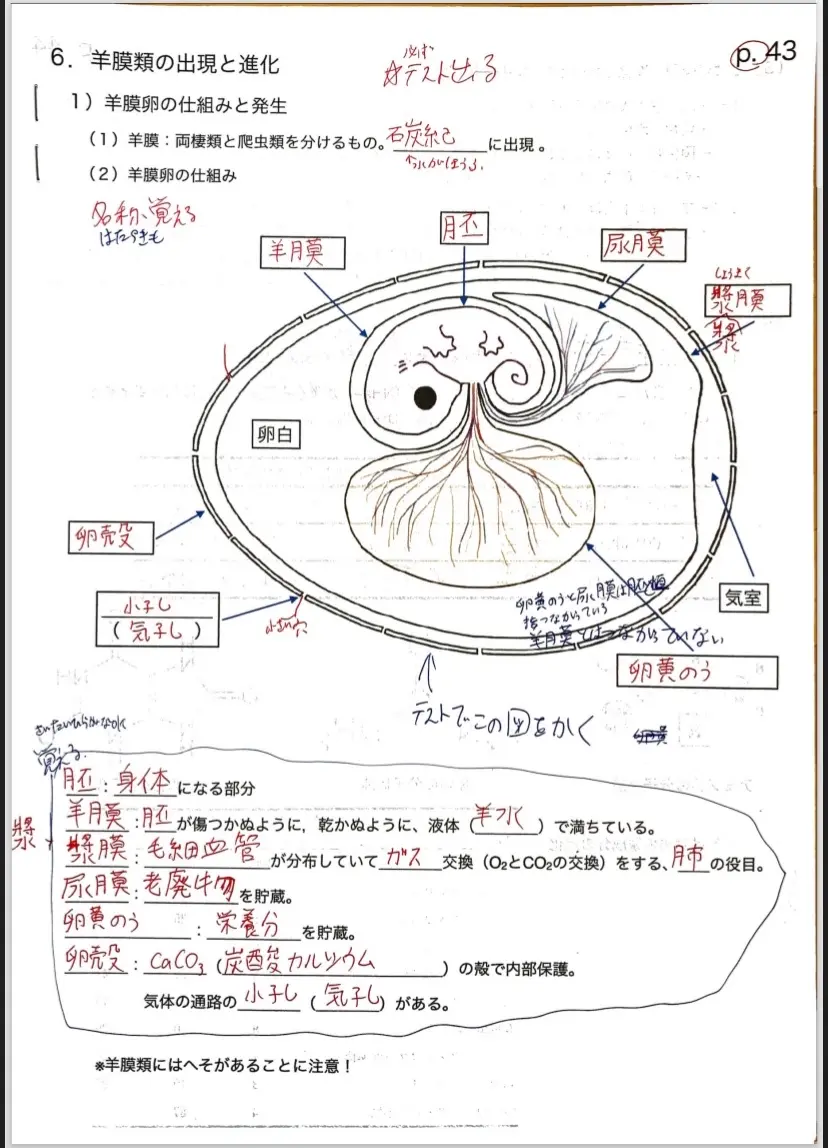 6．羊膜類の出現と進化
必ず
☆テスト出る
p. 43
1）羊膜卵の仕組みと発生
（1）羊膜：両棲類と爬虫類を分けるもの。石炭紀に出現。
（2）羊膜卵の仕組み
名称、覚える
はたらきも
羊膜
胚
尿膜
しょうまく
漿膜
漿
卵白
卵殻
小孔
（気孔）
小さい穴
気室
卵黄のうと尿膜は胚と
つながっている
羊膜とはつながっていない
卵黄のう
テストでこの図をかく
覚える。
胚：身体になる部分
羊膜：胚が傷つかぬように，乾かぬように、液体（羊水）で満ちている。
漿
漿膜：毛細血管が分布していてガス交換（O₂とCO₂の交換）をする、肺の役目。
尿膜：老廃物を貯蔵。
卵黄のう：栄養分を貯蔵。
卵殻：CaCO₃（炭酸カルシウム）の殻で内部保護。
気体の通路の小孔（気孔）がある。
※羊膜類にはへそがあることに注意！